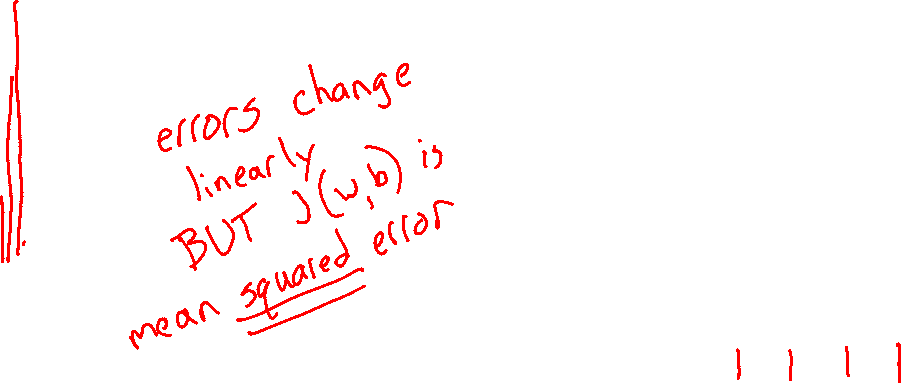 errors change
linearly
BUT J(w,b) is
mean squared error